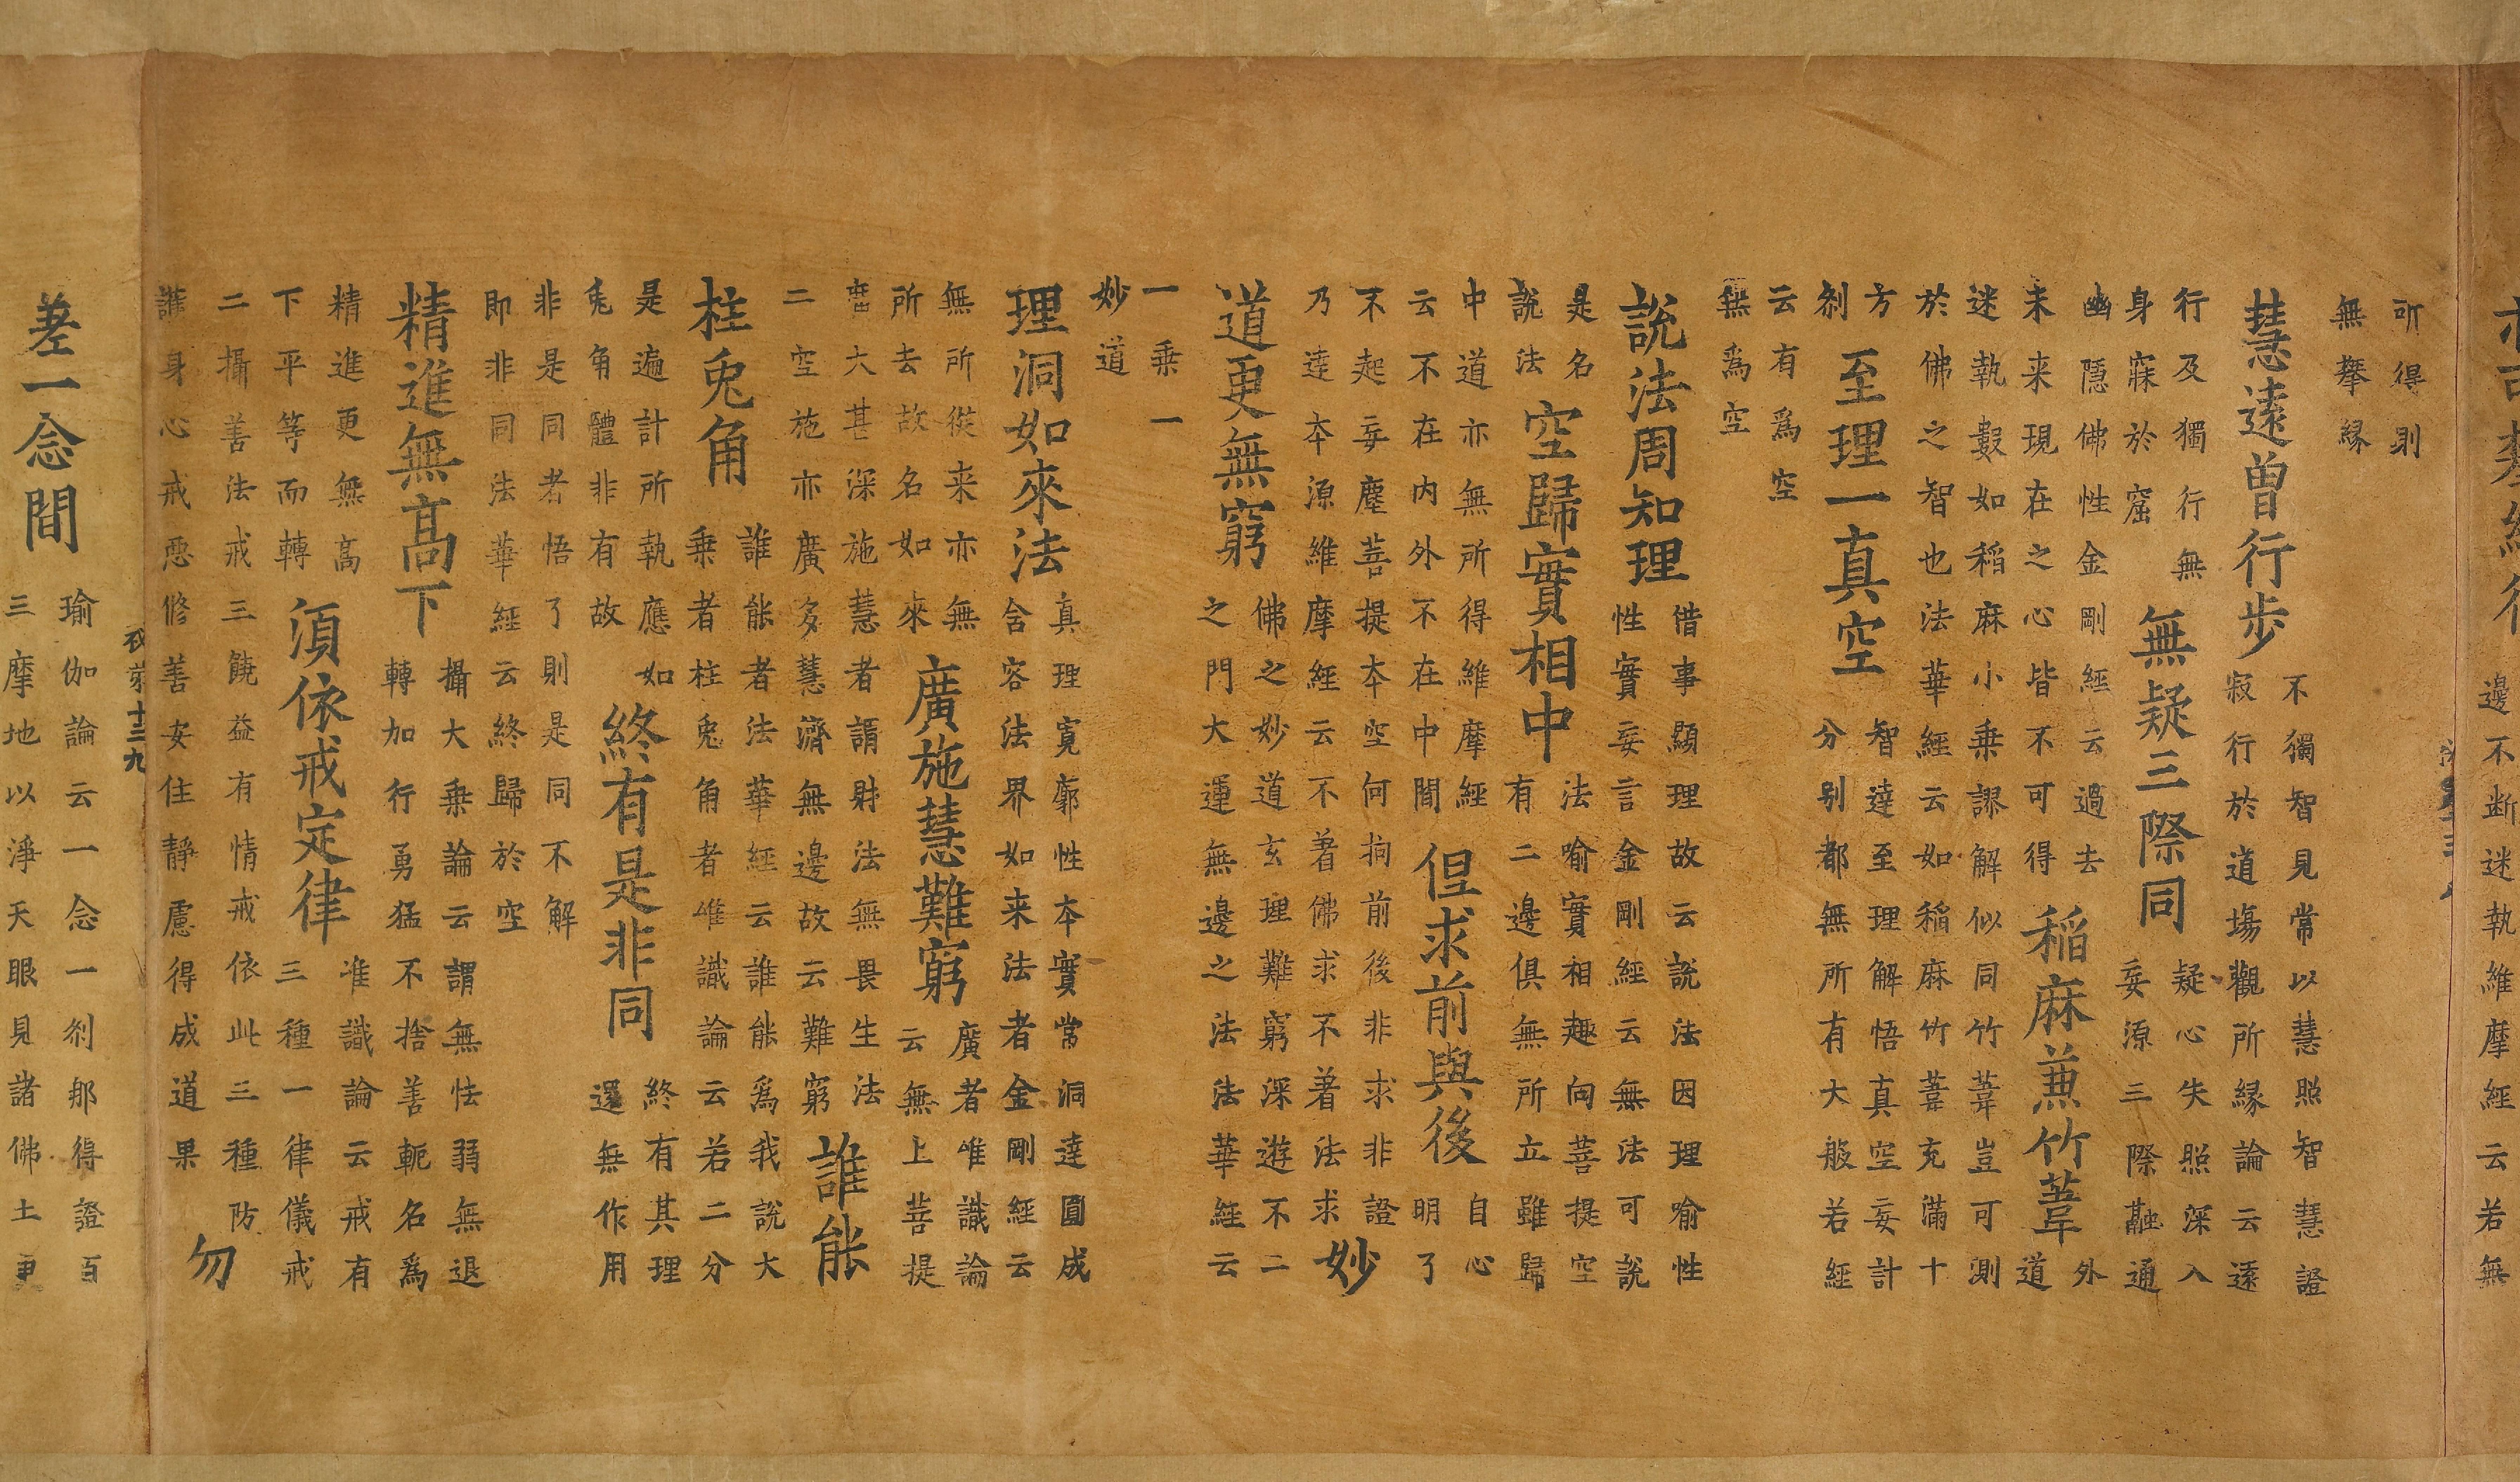 邊不断迷執維摩經云若無
所得則
無攀緣
慧遠曾行步
不獨智見常以慧照智慧證
寂行於道場觀所緣論云遠
行及獨行無
身寐於窟
無疑三際同
疑心失照深入
妄源三際融通
幽隱佛性金剛經云過去
未来現在之心皆不可得
稻麻兼竹葦
外
道
迷執數如稻麻小乗謬解似同竹葦豈可測
於佛之智也法華經云如稻麻竹葦充滿十
方
刹
至理一真空
智達至理解悟真空妄計
分别都無所有大般若經
云有爲空
無爲空
說法周知理
借事顯理故云説法因理喻性
性實妄言金剛經云無法可説
是名
說法
空歸實相中
法喻實相趣向菩提空
有二邊俱無所立雖歸
中道亦無所得維摩經
云不在内外不在中間
但求前與後
自心
明了
不起妄塵菩提本空何拘前後非求非證
乃達本源維摩經云不著佛求不著法求
妙
道更無窮
佛之妙道玄理難窮深遊不二
之門大運無邊之法法華經云
一乗一
妙道
理洞如來法
真理寛廓性本實常洞達圓成
含容法界如来法者金剛經云
無所從来亦無
所去故名如來
廣施慧難窮
廣者唯識論
云無上菩提
廣大甚深施慧者謂財法無畏生法
二空施亦廣多慧濟無邊故云難窮
誰能
柱兎角
誰能者法華經云誰能爲我說大
乗者柱兎角者唯識論云若二分
是遍計所執應如
兎角體非有故
終有是非同
終有其理
還無作用
非是同者悟了則是同不解
即非同法華經云終歸於空
精進無髙下
攝大乗論云謂無怯弱無退
轉加行勇猛不捨善軛名爲
精進更無髙
下平等而轉
須依戒定律
唯識論云戒有
三種一律儀戒
二攝善法戒三饒益有情戒依此三種防
護身心戒惡修善安住靜慮得成道果
勿
十三 九
差一念間
瑜伽論云一念一刹那得證百
三摩地以淨天眼見諸佛土更